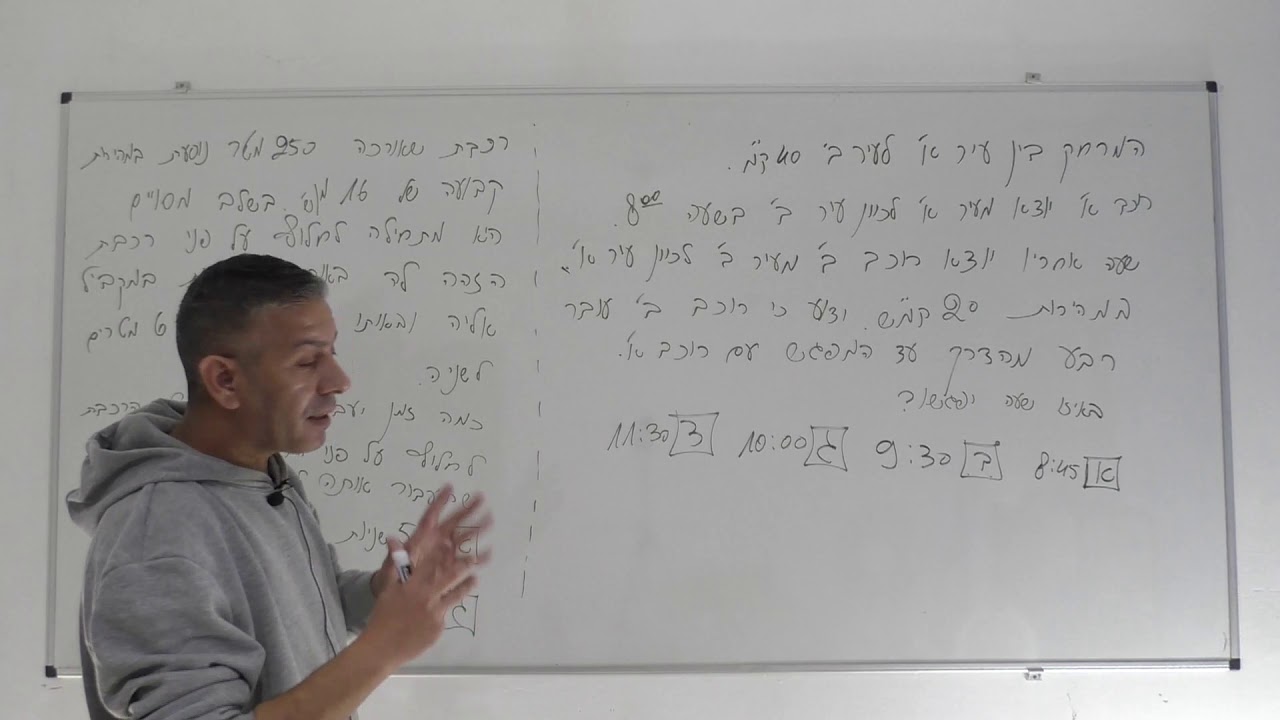 המרחק בין עיר א' לעיר ב' 40 ק"מ.
רוכב א' יוצא מעיר א' לכיוון עיר ב' בשעה 8:00.
שעה אחריו יוצא רוכב ב' מעיר ב' לכיוון עיר א'
במהירות 20 קמ"ש. ידוע כי רוכב ב' עובר
רבע מהדרך עד המפגש עם רוכב א'.
באיזו שעה יפגשו?
א 8:45 ב 9:30 ג 10:00 ד 11:30
רכבת שאורכה 250 מטר נוסעת במהירות
קבועה של 16 מ/ש. בשלב מסויים
היא מתחילה לחלוף על פני רכבת
הזהה לה במקביל
אליה ובאותו מטרים
לשניה.
כמה זמן הרכבת
לחלוף על פני
אותה
א 5 שניות
ג